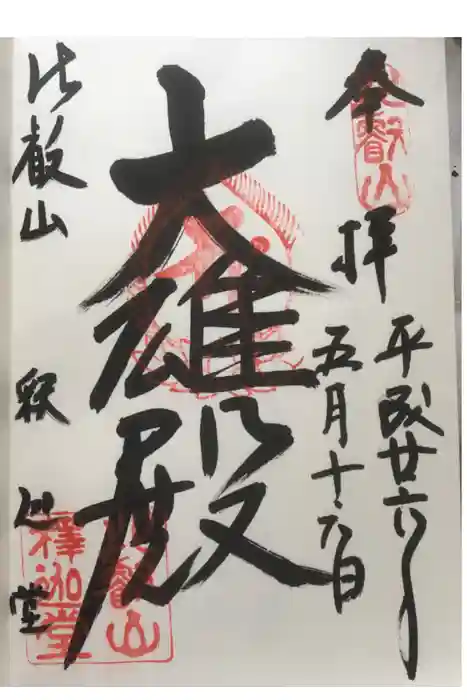 奉拝
平成廿六年
五月十六日
大雄殿
比叡山 釈迦堂
比叡山
比叡山
釋迦堂